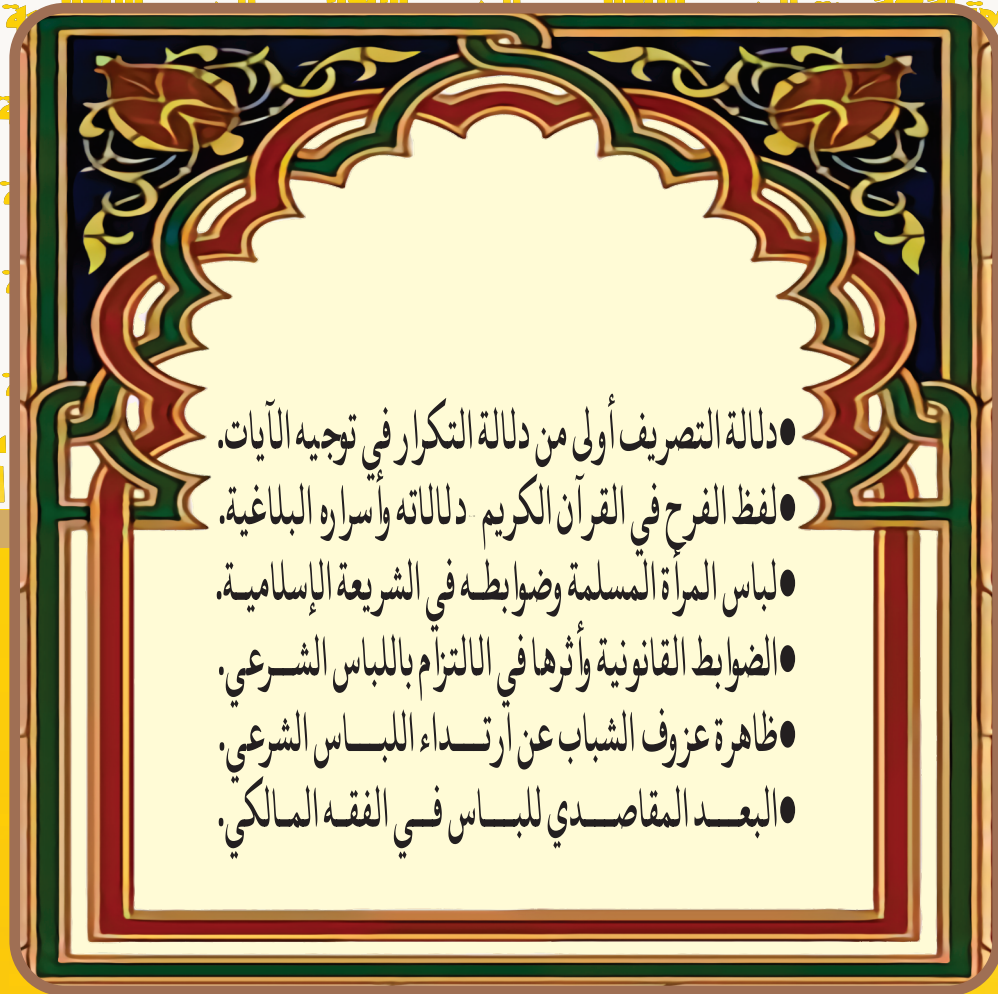 ●دلالة التصريف أولى من دلالة التكرار في توجيه الآيات.
●لفظ الفرح في القرآن الكريم - دلالاته وأسراره البلاغية.
●لباس المرأة المسلمة وضوابطـه في الشريعة الإسلاميـة.
●الضوابط القانونية وأثرها في الالتزام باللباس الشـــرعي.
●ظاهرة عزوف الشباب عن ارتـــداء اللبــــاس الشرعي.
●البعــــد المقاصــــدي للبــــاس فـــي الفقـه المـالكي.